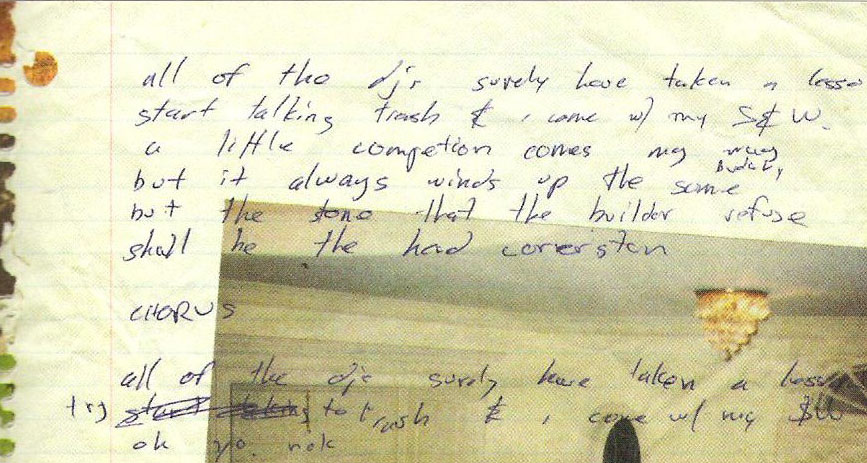 all of the djs surely have taken a lesso
start talking trash & i come w/ my S&W.
a little competion comes my way
buddy,
but it always winds up the same
but the stone that the builder refuse
shall be the head cornerston
CHORUS
all of the djs surely have taken a lesso
try start talking to trash & i come w/ my S&W
ok yo.